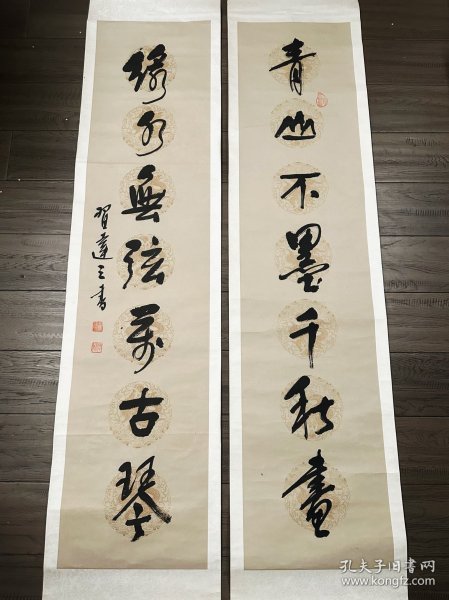 青山不墨千秋畫
綠水無弦萬古琴
習達三書
孔夫子旧书网
www.kongfz.com